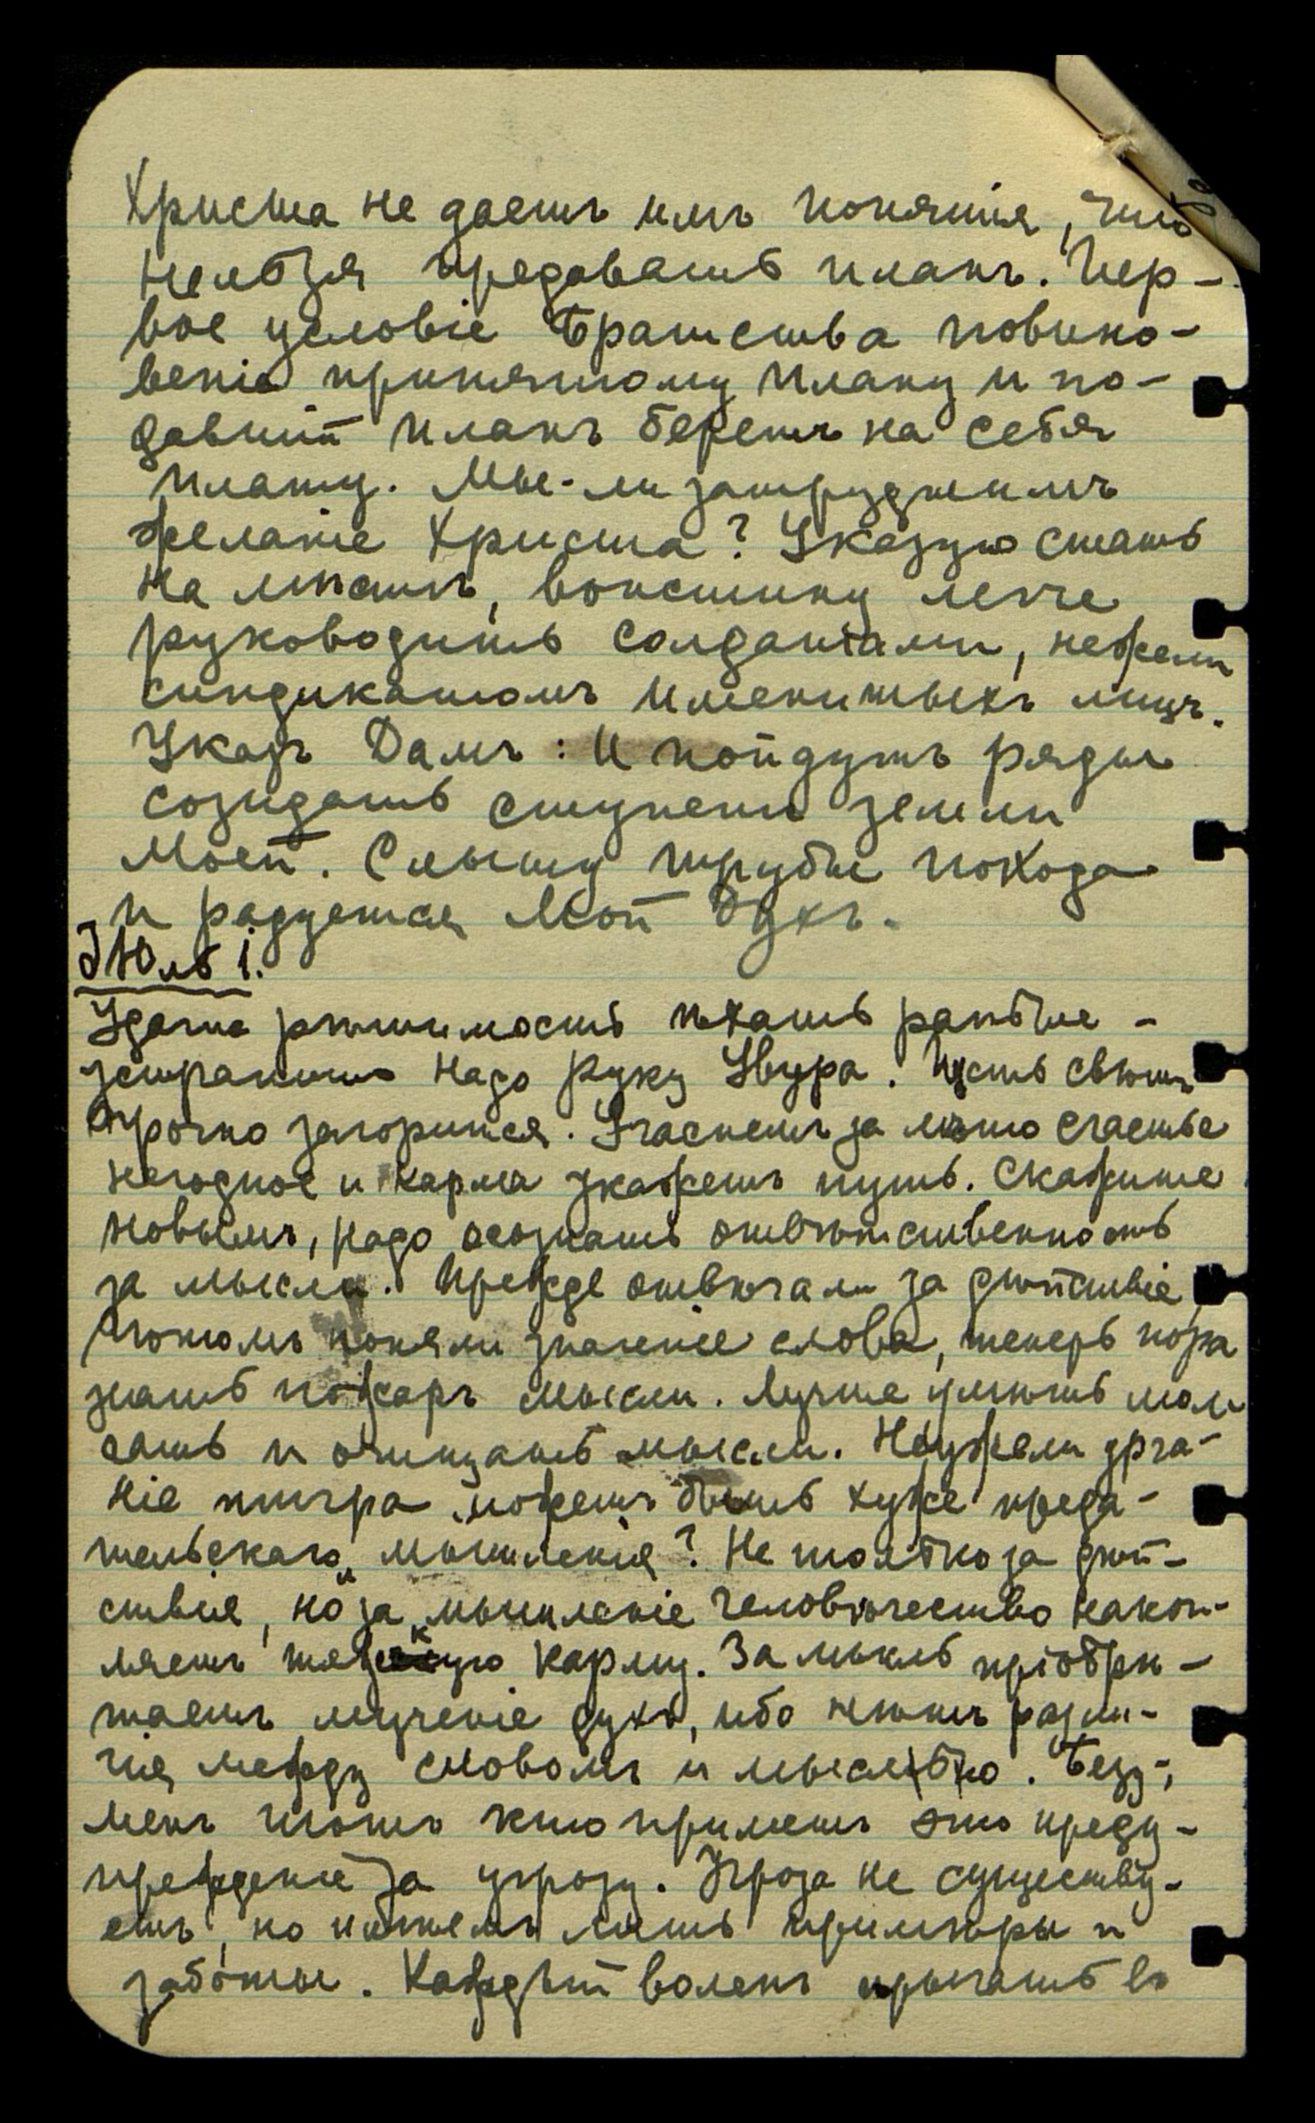 Христа не даетъ имъ понятія, что
нельзя предавать планъ. Пер-
вое условіе Братства повино-
веніе принятому плану и по-
давшій планъ беретъ на себя
плату. Мы-ли затруднимъ
желаніе Христа? Указую стать
на мѣстѣ, воистину легче
руководить солдатами, нежели
синдикатомъ именитыхъ лицъ.
Указъ Дамъ: И пойдутъ ряды
созидать ступени земли
Моей. Слышу трубы похода
и радуется Мой Духъ.
Июль 1.
Удачна рѣшимость ѣхать раньше -
устранить надо руку Увура. Пусть свѣтъ
прочно загорится. Участемъ за мѣсто счастье
негодное и карма укажетъ путь. Скажите
новымъ, надо осознать отвѣтственность
за мысли. Прежде отвѣчали за дѣйствіе,
потомъ поняли значеніе слова, теперь пора
знать пожаръ мысли. Лучше умѣть мол-
чать и очищать мысли. Неужели урча-
ніе тигра можетъ быть хуже преда-
тельскаго мышленія? Не только за дѣй-
ствія, но и за мышленіе человѣчество накоп-
ляетъ тяжкую карму. За мысль пріобрѣ-
таетъ мученіе духъ, ибо нѣтъ разли-
чія между словомъ и мыслью. Безу-
менъ тотъ кто приметъ это преду-
прежденіе за угрозу. Угроза не существу-
етъ, но имѣемъ лишь примѣры и
заботы. Каждый воленъ прыгать въ